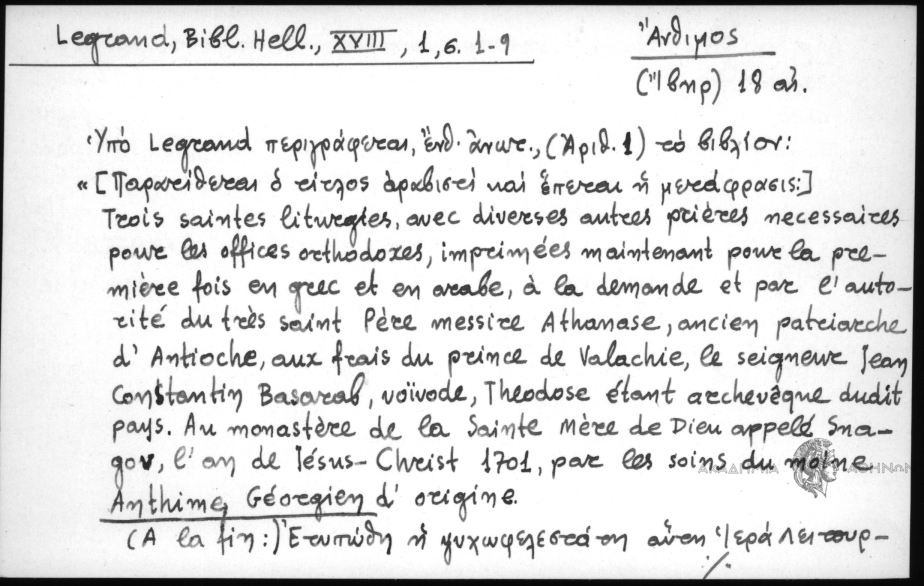 Legrand, Bibl. Hell., XVIII, 1, σ. 1-9
Ἄνθιμος
(Ἴβηρ) 18 αἰ.
Ὑπό Legrand περιγράφεται, ἔνθ. ἀνωτ., (Ἀριθ. 1) τό βιβλίον:
« [Παρατίθεται ὁ τίτλος ἀραβιστί καί ἕπεται ἡ μετάφρασις:]
Trois saintes liturgies, avec diverses autres prières necessaires
pour les offices orthodoxes, imprimées maintenant pour la pre-
mière fois en grec et en arabe, à la demande et par l'auto-
rité du très saint Père messire Athanase, ancien patriarche
d'Antioche, aux frais du prince de Valachie, le seigneur Jean
Constantin Basarab, voïvode, Theodose étant archevêque dudit
pays. Au monastère de la Sainte Mère de Dieu appelé Sna-
gov, l'an de Jésus-Christ 1701, par les soins du moine
Anthime, Géorgien d'origine.
(A la fin:) Ἐτυπώθη ἡ ψυχωφελεστάτη αὕτη Ἱερά Λειτουρ-
./.
ΑΚΑΔΗΜΙΑ ΑΘΗΝΩΝ